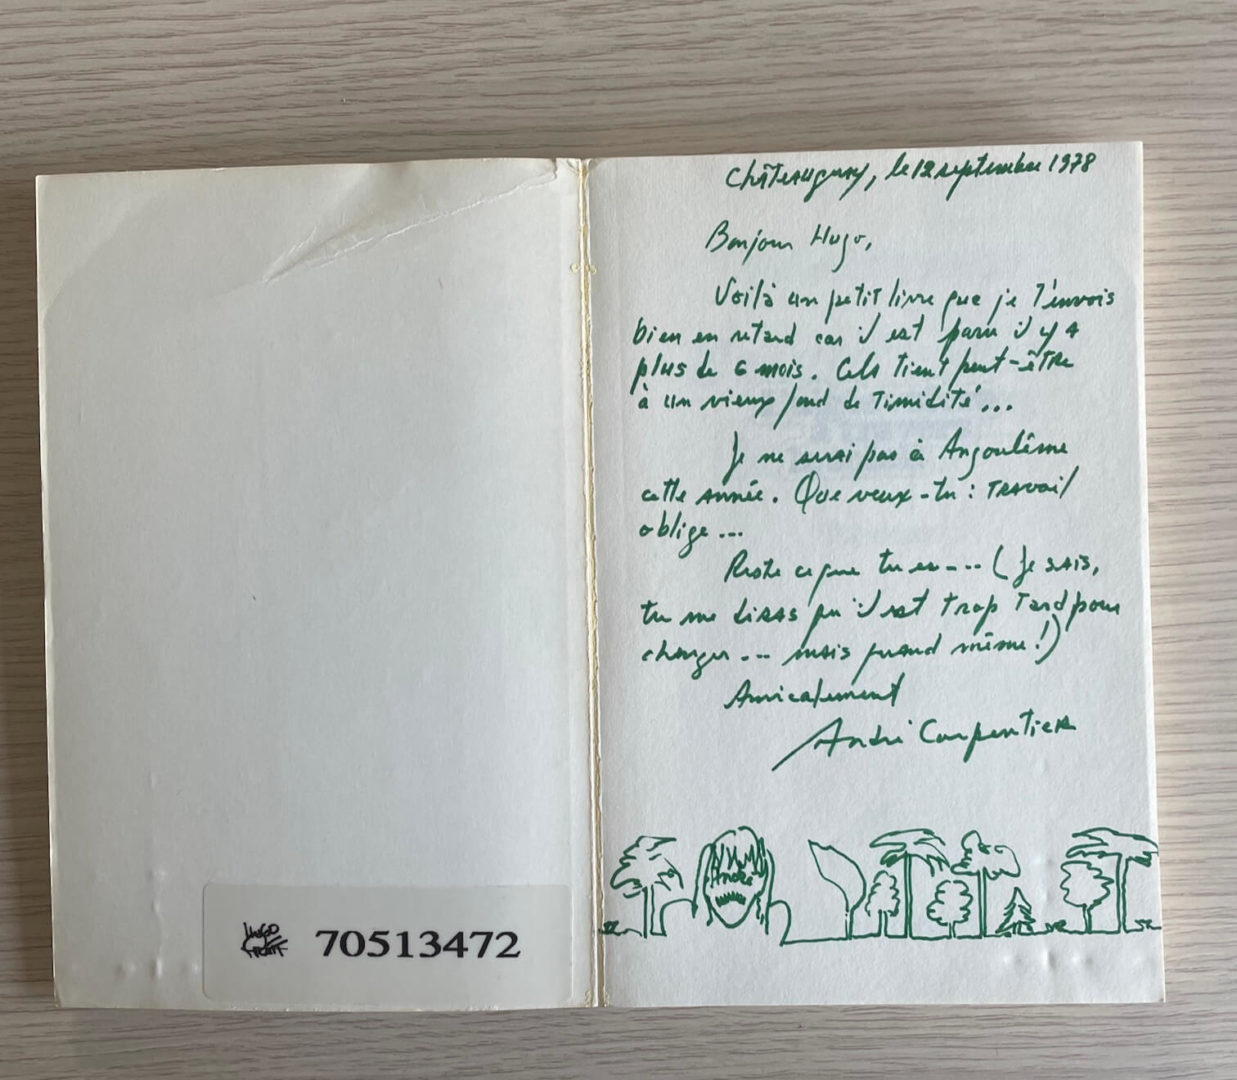 Hugo
Pratt
70513472
Châteauguay, le 12 septembre 1978
Bonjour Hugo,
Voilà un petit livre que je t'envois
bien en retard car il est paru il y a
plus de 6 mois. Cela tient peut-être
à un vieux fond de timidité...
Je ne serai pas à Angoulême
cette année. Que veux-tu : travail
oblige...
Reste ce que tu es.... (Je sais,
tu me diras qu'il est trop tard pour
changer... mais quand même!)
Amicalement
André Carpentier
André